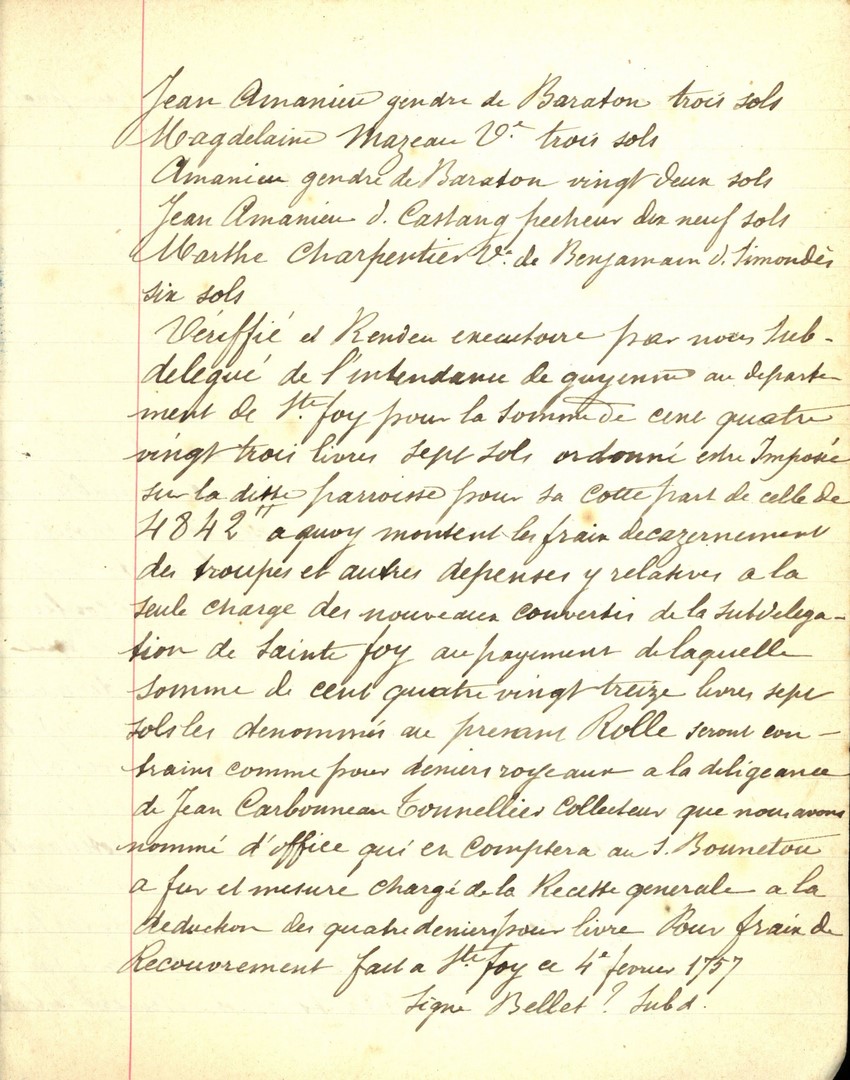 Jean Amanieu gendre de Baraton trois sols
Magdelaine Mazeau Ve trois sols
Amanieu gendre de Baraton vingt deux sols
Jean Amanieu d. Castang pecheur dix neuf sols
Marthe Charpentier Ve de Benjamain d. Simondès
six sols
Vériffié et Rendeu executoire par nous Sub-
delegué de l'intendance de guyenne au departe-
ment de Ste foy pour la somme de cent quatre
vingt trois livres sept sols ordonné estre Imposée
sur la ditte parroisse pour sa cotte part de celle de
4842tt a quoy montent les frais decazernement
des troupes et autres depenses y relatives a la
seule charge des nouveaux convertis de la subdelega-
tion de Sainte foy au payement de laquelle
somme de cent quatre vingt treize livres sept
sols les denommés au presant Rolle seront con-
trains comme pour deniers royeaux a la diligeance
de Jean Carbonneau Tounellier Collecteur que nous avons
nommé d'office qui en Comptera au S. Bounetou
a fur et mesure chargé de la Recette generale a la
deduction des quatre deniers pour livre Pour frais de
Recouvrement fait a Ste foy ce 4e fevrier 1757
Signé Bellet ? Subd.